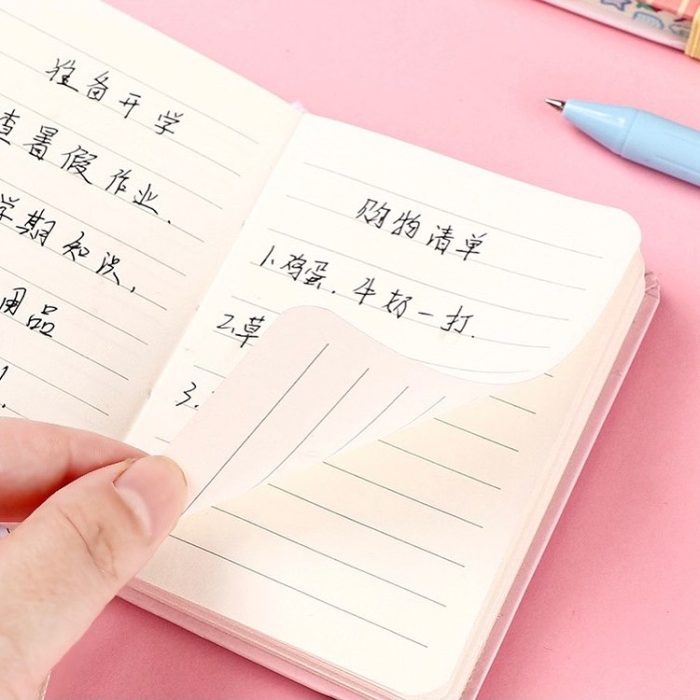 准备开学
查暑假作业.
学期知识,
用品
购物清单
1.鸡蛋.牛奶一打.
2.草
3.